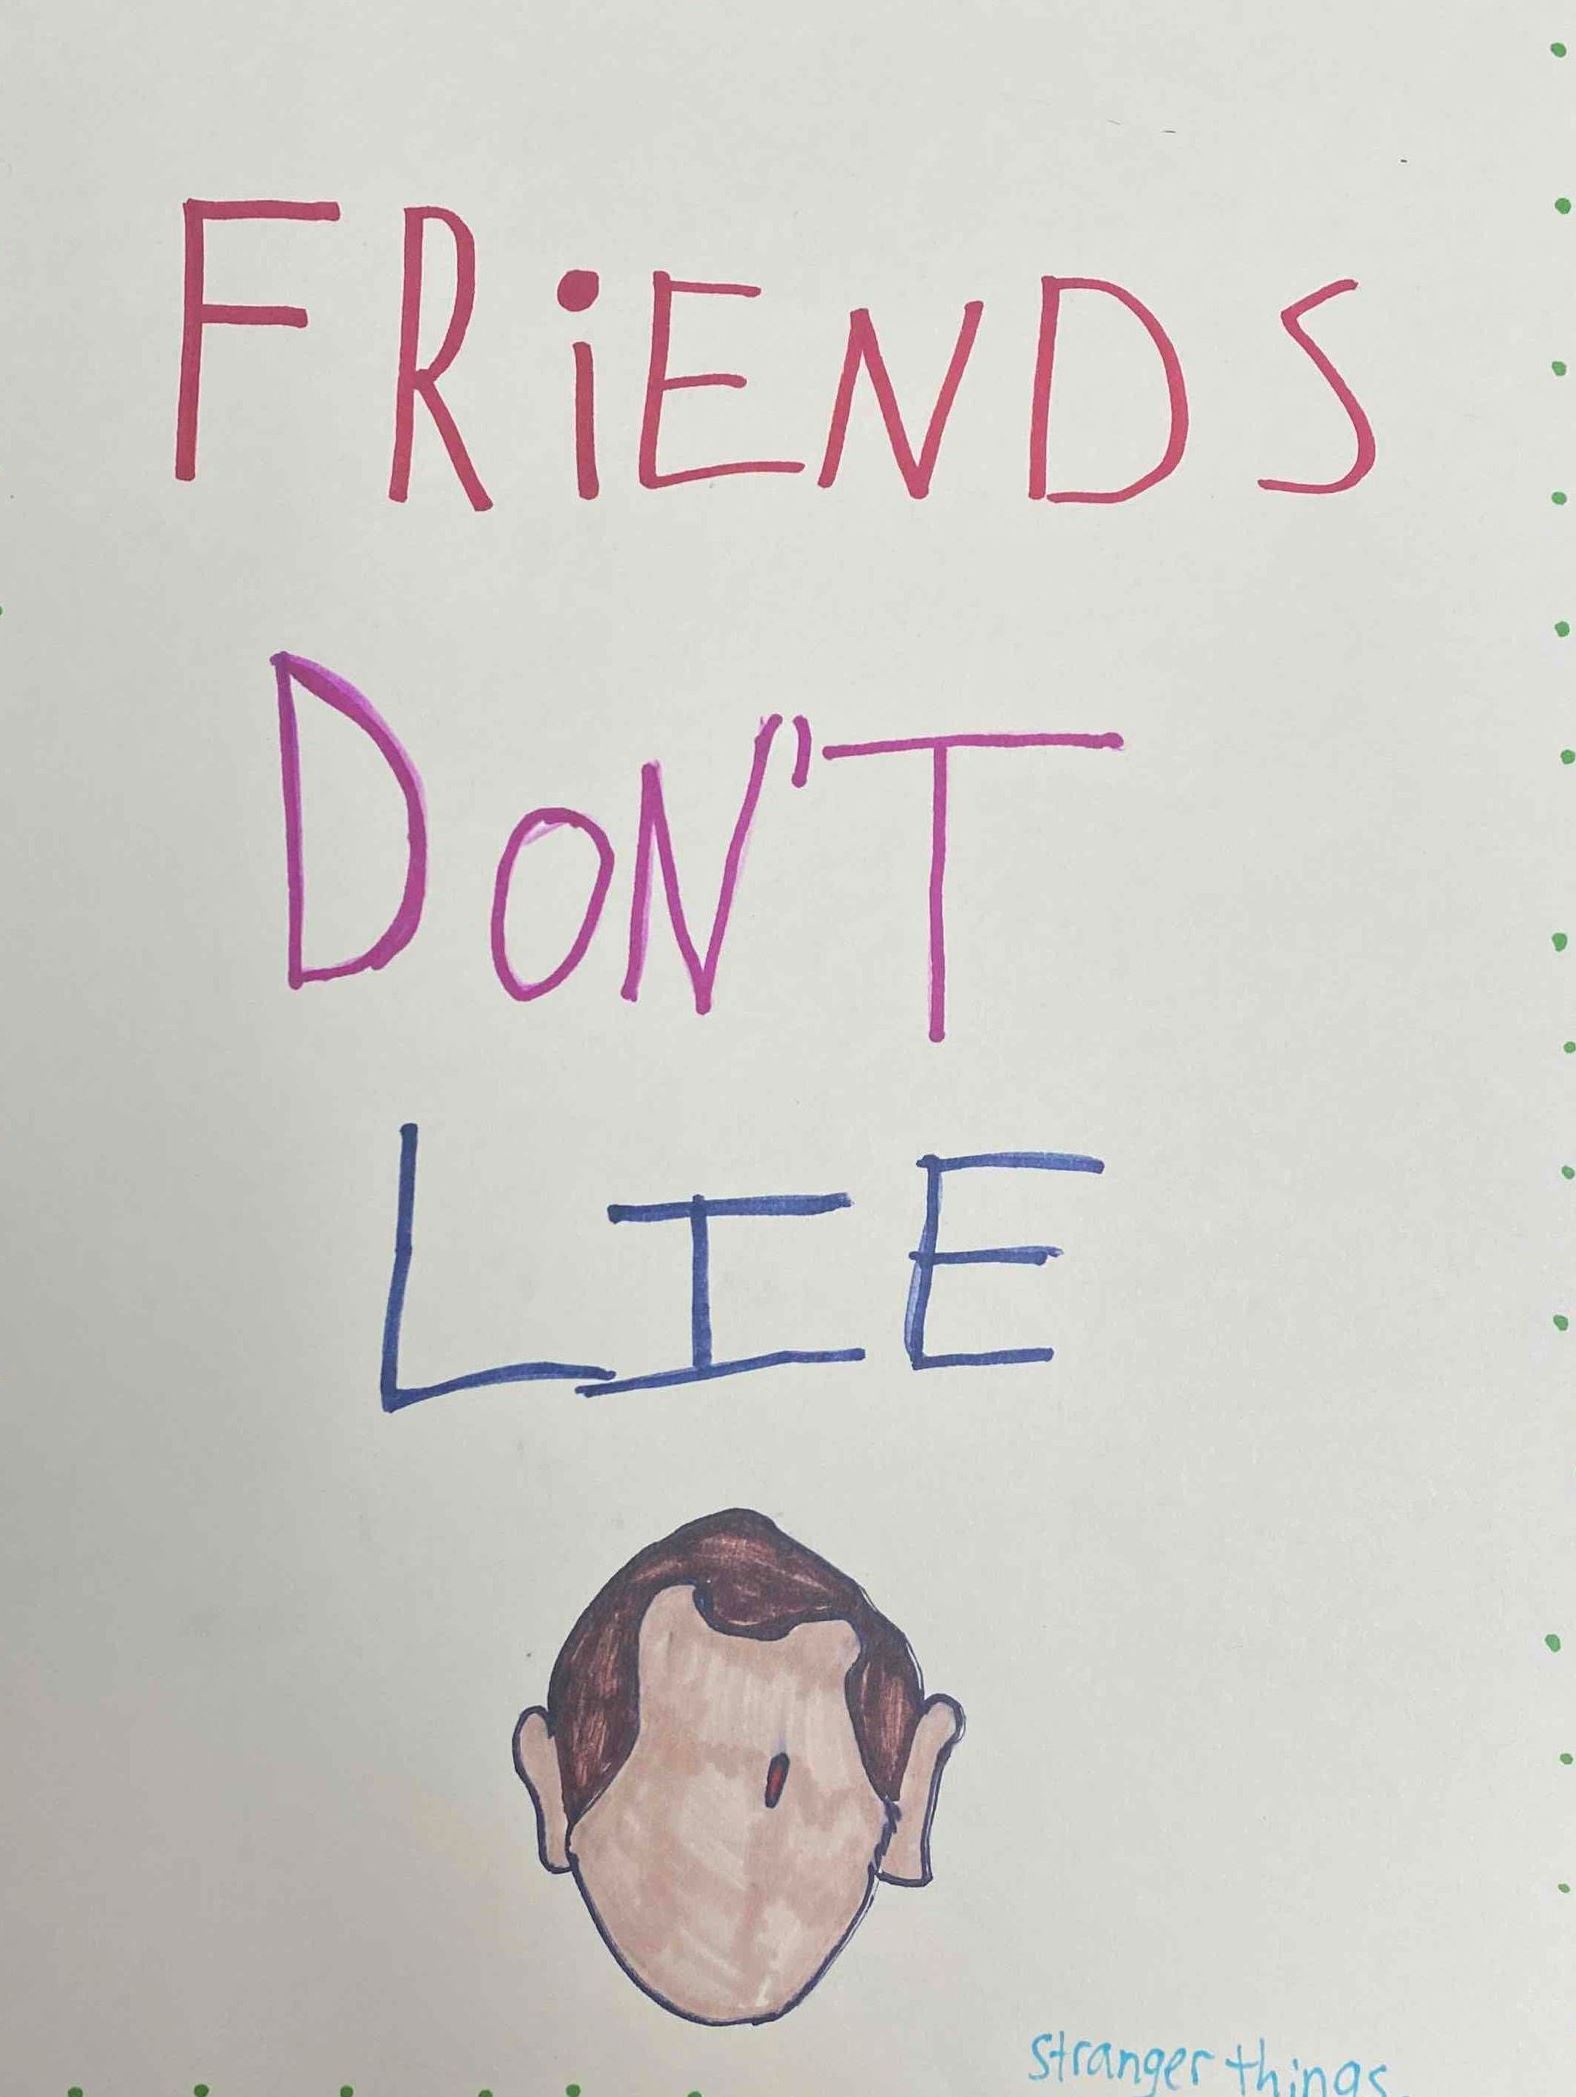 FRiENDS
DON'T
LIE
Stranger things